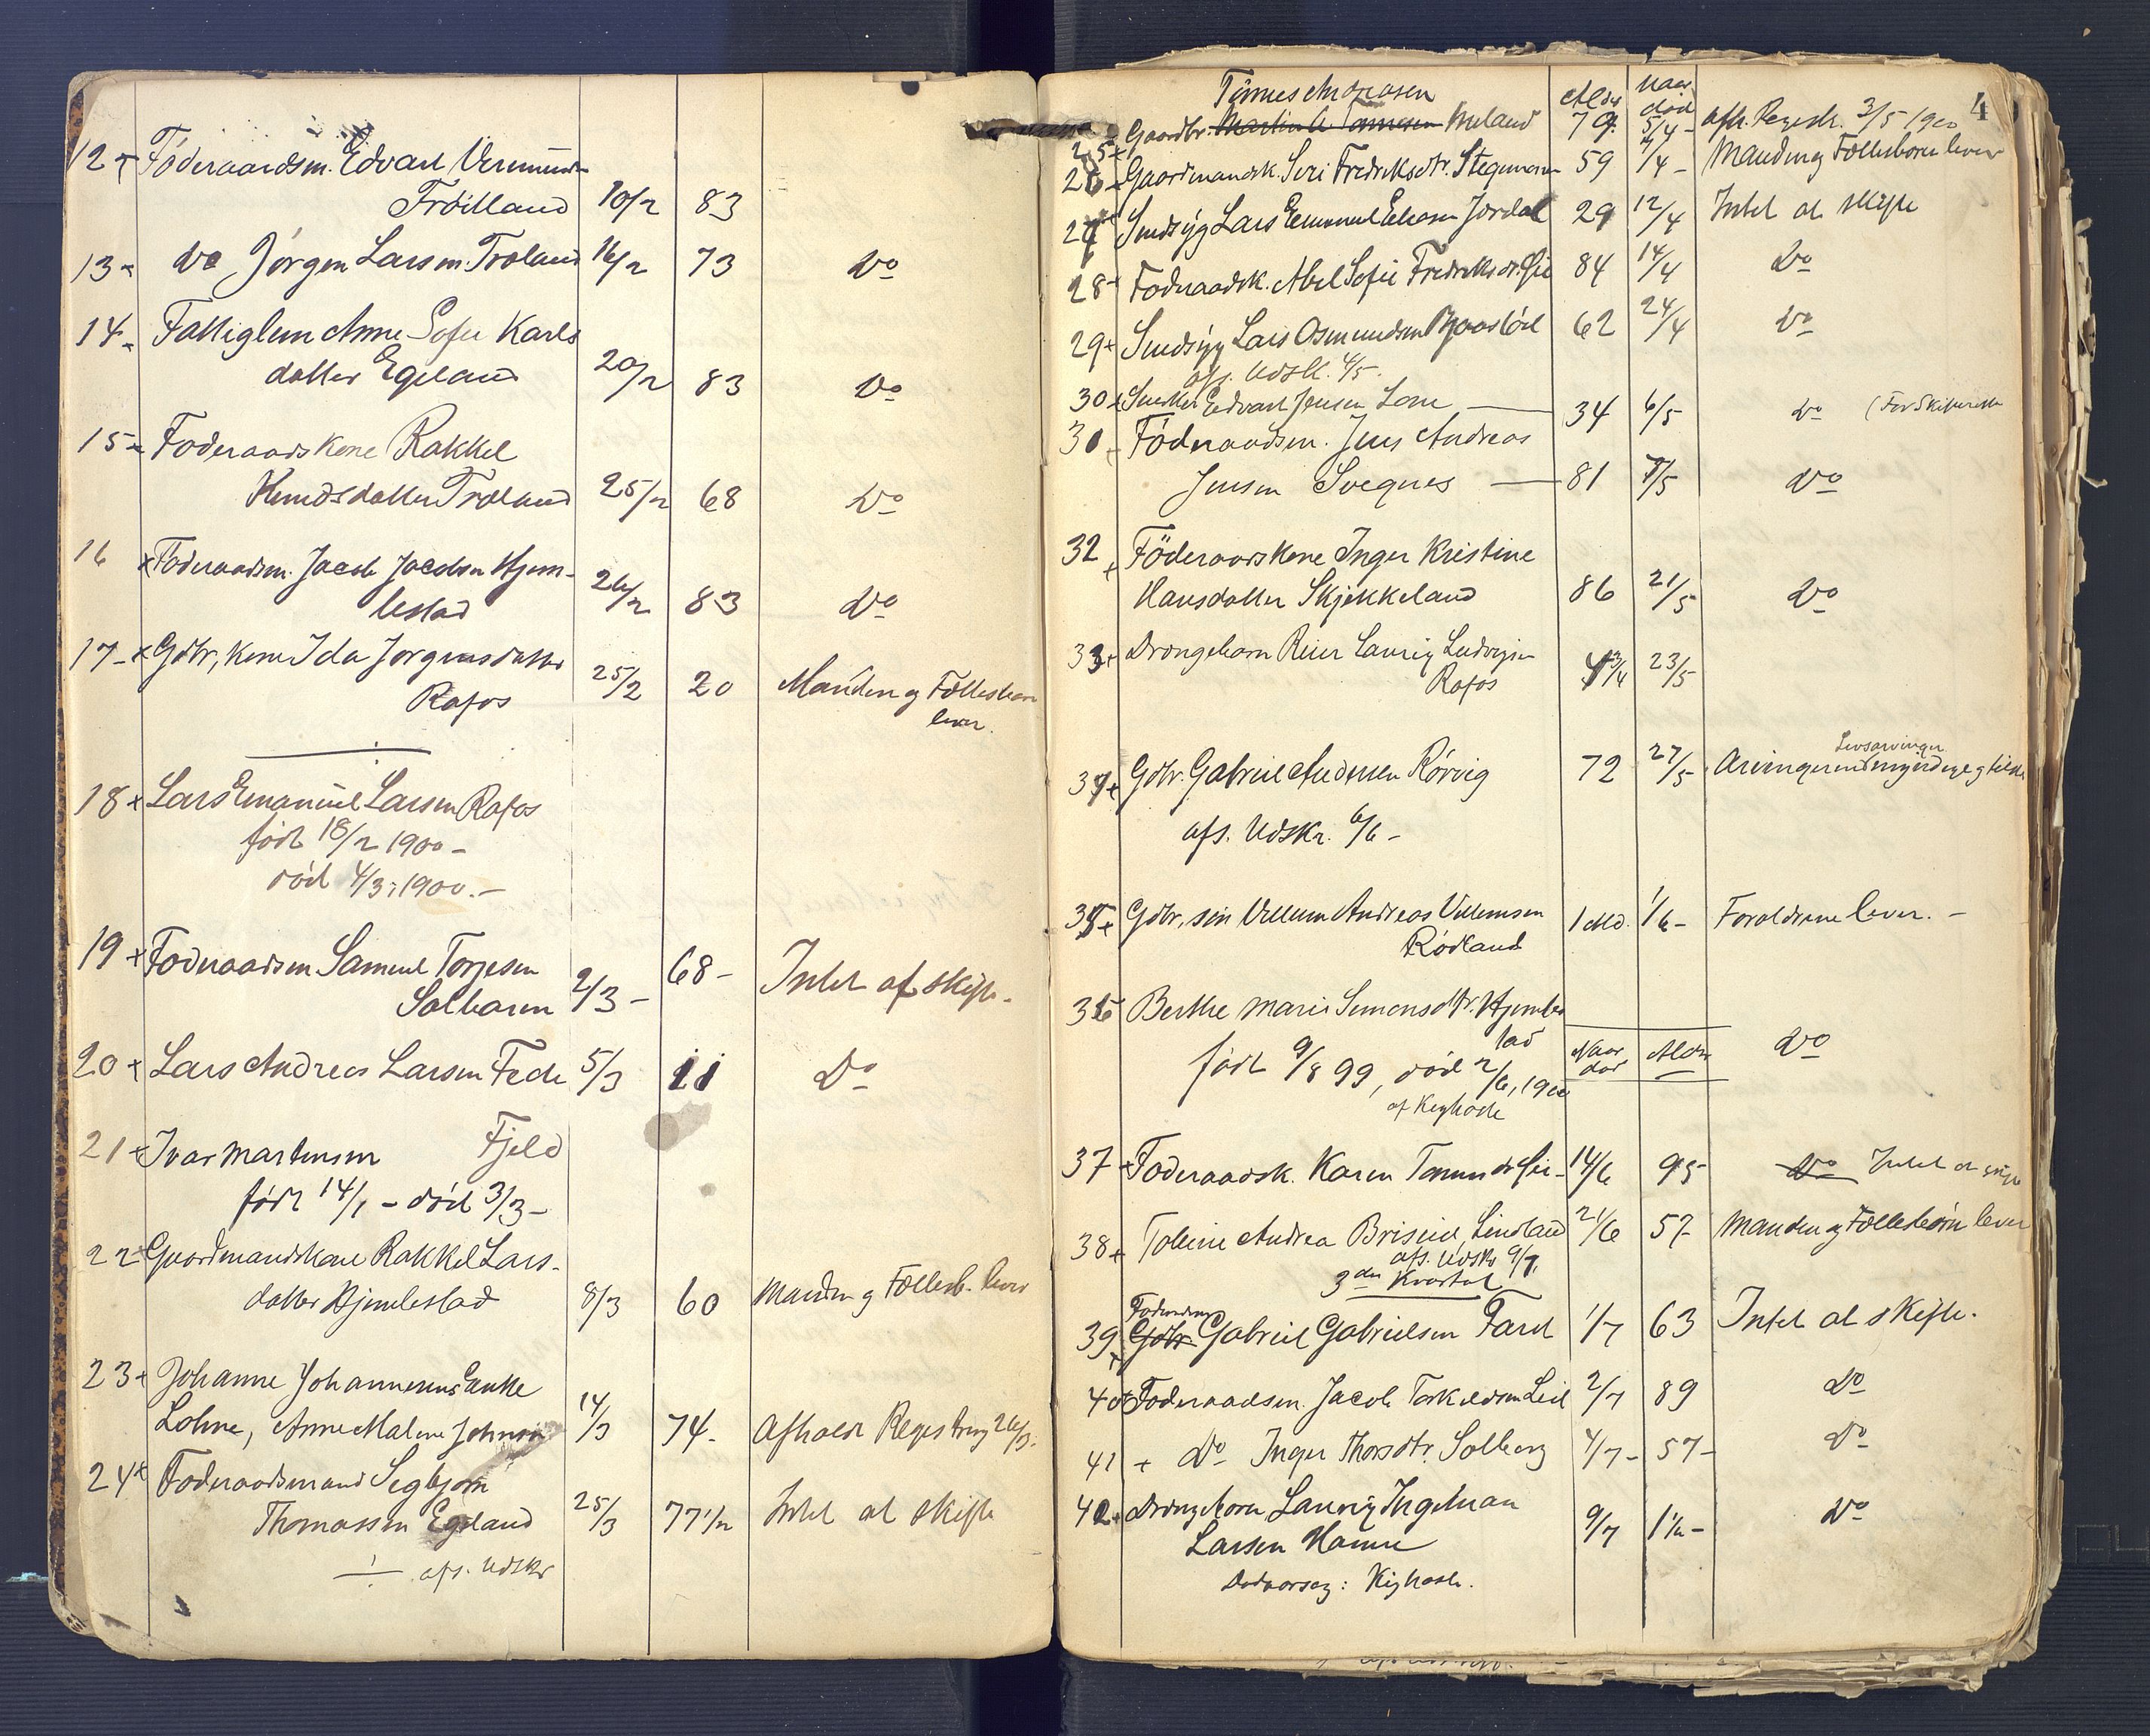 12 Föderaadsm. Edvart
Fröilland 10/2 83
13 do Jörgen Larsen Tröland 16/2 73 Do
14 Fattiglem Anne Sofie Karls
datter Egeland 20/2 83 Do
15 Föderaadskone Rakkel
Knudsdatter Tröland 25/2 68 Do
16 Föderaadsm. Jacob Jacobsen Hjem-
lestad 26/2 83 Do
17 Gdbr, kone Ida Jørgensdatter
Rafos 25/2 20 Manden og Fællesbørn
lever.
18 Lars Emanuel Larsen Rafos
född 18/2 1900 -
död 4/3, 1900. -
19 Föderaadsm Samuel Torjesen
Solbaren 2/3 - 68 - Intet at skifte.
20 Lars Andreas Larsen Fede 5/3 11 Do
21 Ivar Martensen Fjeld
född 14/1 - död 3/3 -
22 Gaardmandskone Rakkel Lars-
datter Hjemlestad 8/3 60 Manden og Fællesb. lever
23 Johanne Johannesens Enke
Lohne, Anne Malene 14/3 74 - Afholdt Registrering 26/3.
24 Föderaadsmand Segbjørn
Thomassen Egeland 25/3 77 1/2 Intet at skifte
afs. Udskr
4
Tönnes Andreasen Alder Naar
död
25 Gaardbr. Martin A Tönnesen Meland 79 5/4 - afh. Registr. 3/5 1900
26 Gaardmandsk. Siri Fredriksdtr. Stegemoen 59 4/4 - Manden og Fællesbørn lever
27 Sindsyg Lars Emanuel Eliasen Jerdal 29 12/4 Intet at skifte
28 Föderaadsk. Abel Sofie Fredriksdtr. 84 14/4 Do
29 Sindsyg Lars Osmundsen 62 24/4 Do
afs. Udskr. 4/5.
30 Snedker Edvart Jensen Lone 34 6/5 do (For Skifteretten
31 Föderaadsm. Jens Andreas
Jensen Svegnes 81 7/5 Do
32 Föderaadskone Inger Kristine
Hansdatter Skjekkeland 86 21/5 Do
33 Drengebarn Reier Lauritz Ludvigsen
Rafos 23/5
34 Gdbr. Gabriel Andersen Rörvig 72 27/5 Livsarvinger
Arvingerne myndige og
afs. Udskr. 6/6 -
35 Gdbr, sön Villum Andreas Villumsen
Rödland 1 Md. 1/6 - Forældrene lever. -
36 Berthe Marie Simonsdtr. Hjemles
tad Do
född 9/8 99, död 2/6, 1900 Naar
död Alder
af Kighoste
37 Föderaadsk. Karen 14/6 95 Do Intet at skifte
38 Toline Andrea Briseid, Lindland 21/6 57 - Manden og Fællesbørn lever
afs. Udskr 9/7,
3die Kvartal
39 Gdbr. Gabriel Gabrielsen Farel 1/7 63 Intet at skifte.
40 Föderaadsm. Jacob Torkildsen Leid 2/7 89 Do
41 Do Inger Thorsdtr. Solberg 4/7 - 57 - Do
42 Drengebarn Lauritz Ingelman
Larsen Hamre 9/7 1 1/2 - Do
Dødsaarsag: Kighoste.